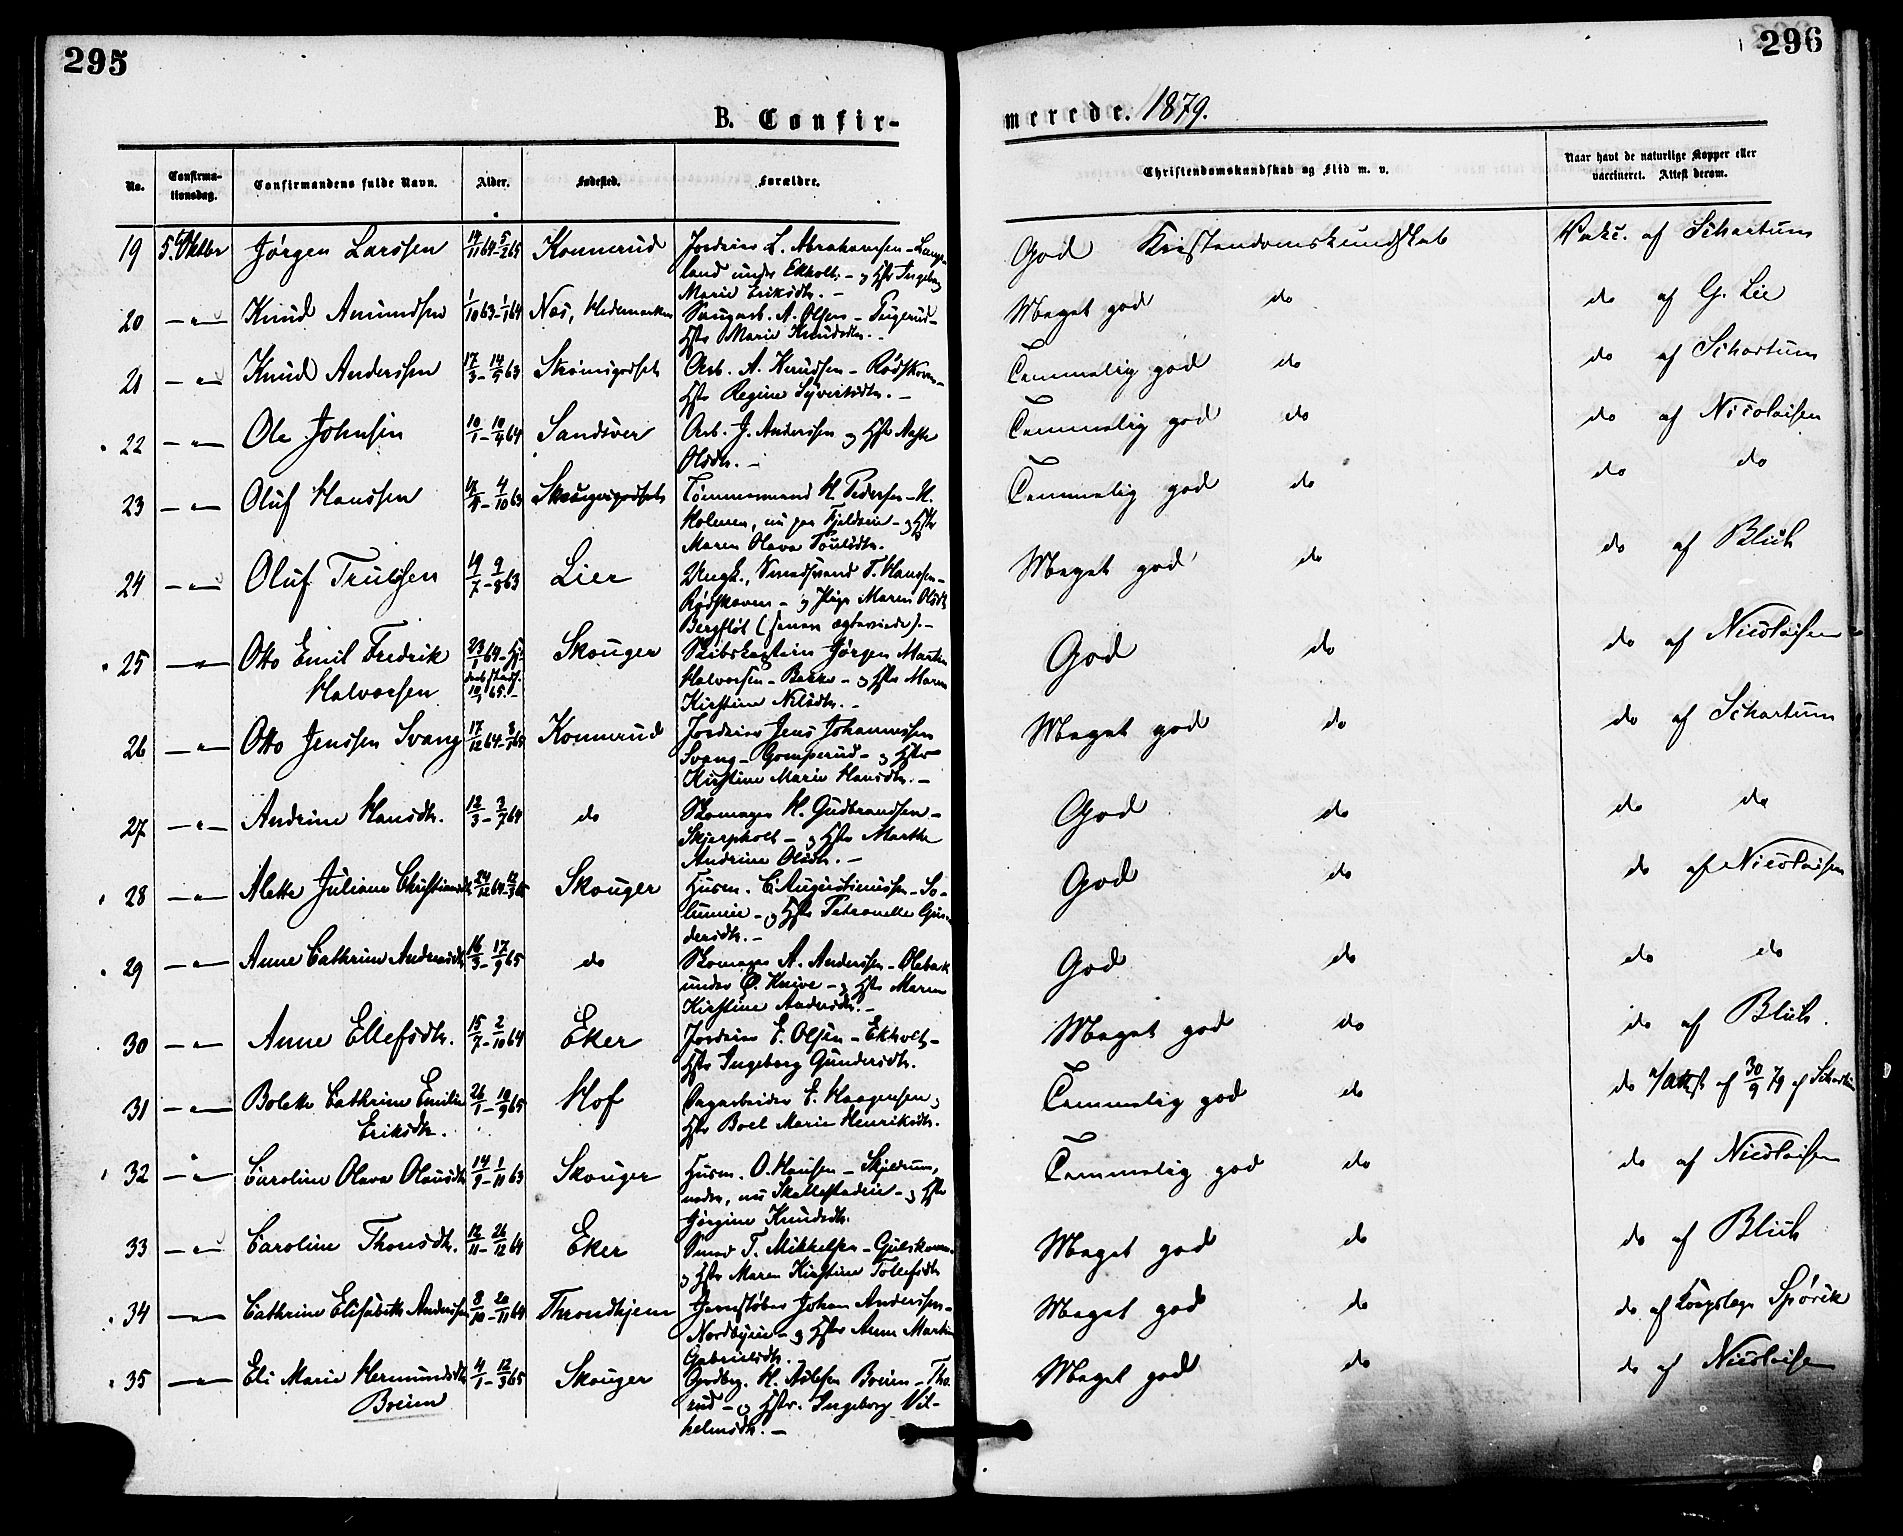 295
296
B. Confir-
merede. 1879.
No.
Confirma-
tionsdag.
Confirmandens fulde Navn.
Alder.
Fødested.
Forældre.
Christendomskundskab og Flid m. v.
Naar havt de naturlige Kopper eller
vaccineret. Attest derom.
19 5. Oktbr Jørgen Larssen 14/11 64 5/2 65 Konnerud Jordeier L. Abrahamsen - Lange-
land under Ekholt - og Hstr Ingeborg
Marie Eriksdtr. -
God Kristendomskundskab Vakc. af Schartum
20 - " - Knud Amundsen 1/10 63 - 1/1 64 Næs, Hedemarken Saugarb. A. Olsen -
Hstr Marie Knudsdtr. -
Meget god do do af G. Lie
21 - " - Knud Anderssen 17/3 - 14/5 63 Strømsgodset Arb. A. Knudsen - Rødskoven -
Hstr Regine Syvertsdtr. -
Temmelig god do do af Schartum
22 - " - Ole Johnsen 10/1 - 10/4 64 Sandsvær Arb. J. Anderssen og Hstr
Olsdtr. -
Temmelig god do do af Nicolaisen
23 - " - Oluf Hanssen 4/10 63 Tømmermand H. Pedersen - N.
Holmen, nu paa Fjeldeie - og Hstr
Maren Olava Poulsdtr.
Temmelig god do do do
24 - " - Oluf Trulssen 19/7 - 9/8 63 Lier Ungk., Smedsvend T. Hanssen -
Rødskoven - og Pige Maren Olsdtr
Bergfløt (senere ægteviede). -
Meget god do do af Blich
25 - " - Otto Emil Fredrik 23/1 64 - Skouger Skibskaptein Jørgen Martin
Halvorsen 10/9 65. - Halvorsen - Bakke - og Hstr Maren
Kirstine Nilsdtr. -
God do do af Nicolaisen
26 - " - Otto Jenssen Svang 17/12 64 - 8/1 65 Konnerud Jordeier Jens Johannessen
Svang - Gomperud - og Hstr
Kirstine Marie Hansdtr. -
Meget god do do af Schartum
27 - " - Andrine Hansdtr. 12/3 - 3/7 64 do Skomager H. Gudbrandsen -
Skjerpholt - og Hstr Marthe
Andrine Olsdtr. -
God do do do
28 - " - Alette Juliane Christiansdtr 24/12 64 12/3 65 Skouger Husm. C. Augustinussen - So-
lumeie - og Hstr Petronelle Gun-
dersdtr. -
God do do af Nicolaisen
29 - " - Anne Cathrine Andersdtr 16/3 - 17/9 65 do Skomager A. Anderssen - Olebak
under Ø. Knive - og Hstr Maren
Kirstine Andersdtr. -
God do do do
30 - " - Anne Ellefsdtr. 15/7 - 2/10 64 Eker Jordeier E. Olsen - Ekholt -
Hstr Ingeborg Gundersdtr.
Meget god do do af Blich.
31 - " - Bolette Cathrine Emilie 26/1 - 10/9 65 Hof Sagarbeider E. Haagensen og
Eriksdtr. Hstr Boel Marie Henriksdtr.
Temmelig god do do Attest af 30/9 79 af Schartum
32 - " - Caroline Olava Olausdtr 14/9 - 1/11 63 Skouger Husm. O. Hansen - Skjerum,
nedre, nu Skallestadeie - og Hstr
Jørgine Knudsdtr.
Temmelig god do do af Nicolaisen
33 - " - Caroline Thorsdtr. 12/11 - 26/12 64 Eker Smed T. Mikkelsen - Gulskoven -
og Hstr Maren Kirstine Tollefsdtr
Meget god do do af Blich
34 - " - Cathrine Elisabeth Anderssen 8/10 - 20/11 64 Throndhjem Jernstøber Johan Anderssen -
Nordbyeie - og Hstr Anne Martine
Gabrielsdtr. -
Meget god do do af Korpslæge Spørck
35 - " - Eli Marie Hermundsdtr 4/1 - 12/3 65 Skouger Grdbrg. H. Asleson Breien - Tho-
Breien rud - og Hstr. Ingeborg Vil-
helmsdtr. -
Meget god do do af Nicolaisen